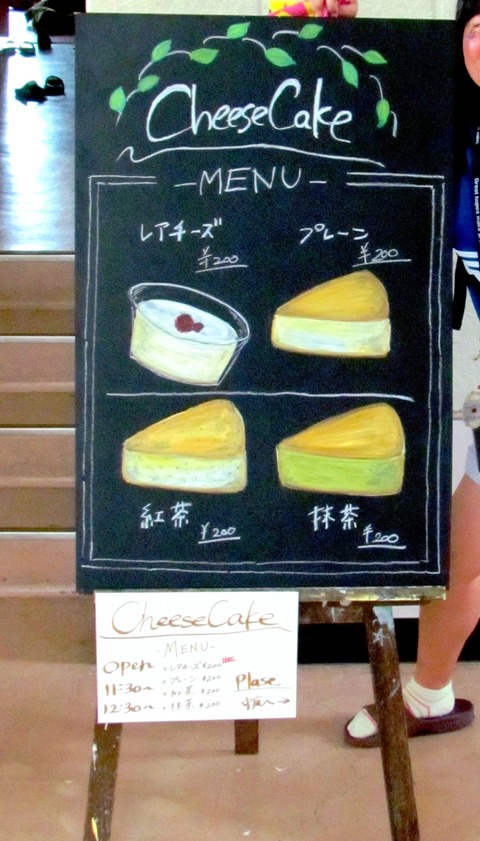 CheeseCake
MENU
レアチーズ
¥200
プレーン
¥200
紅茶
¥200
抹茶
¥200
CheeseCake
-MENU-
OPEN
11:30~
12:30~
・レアチーズ ¥200
・プレーン ¥200
・紅茶 ¥200
・抹茶 ¥200
Plase